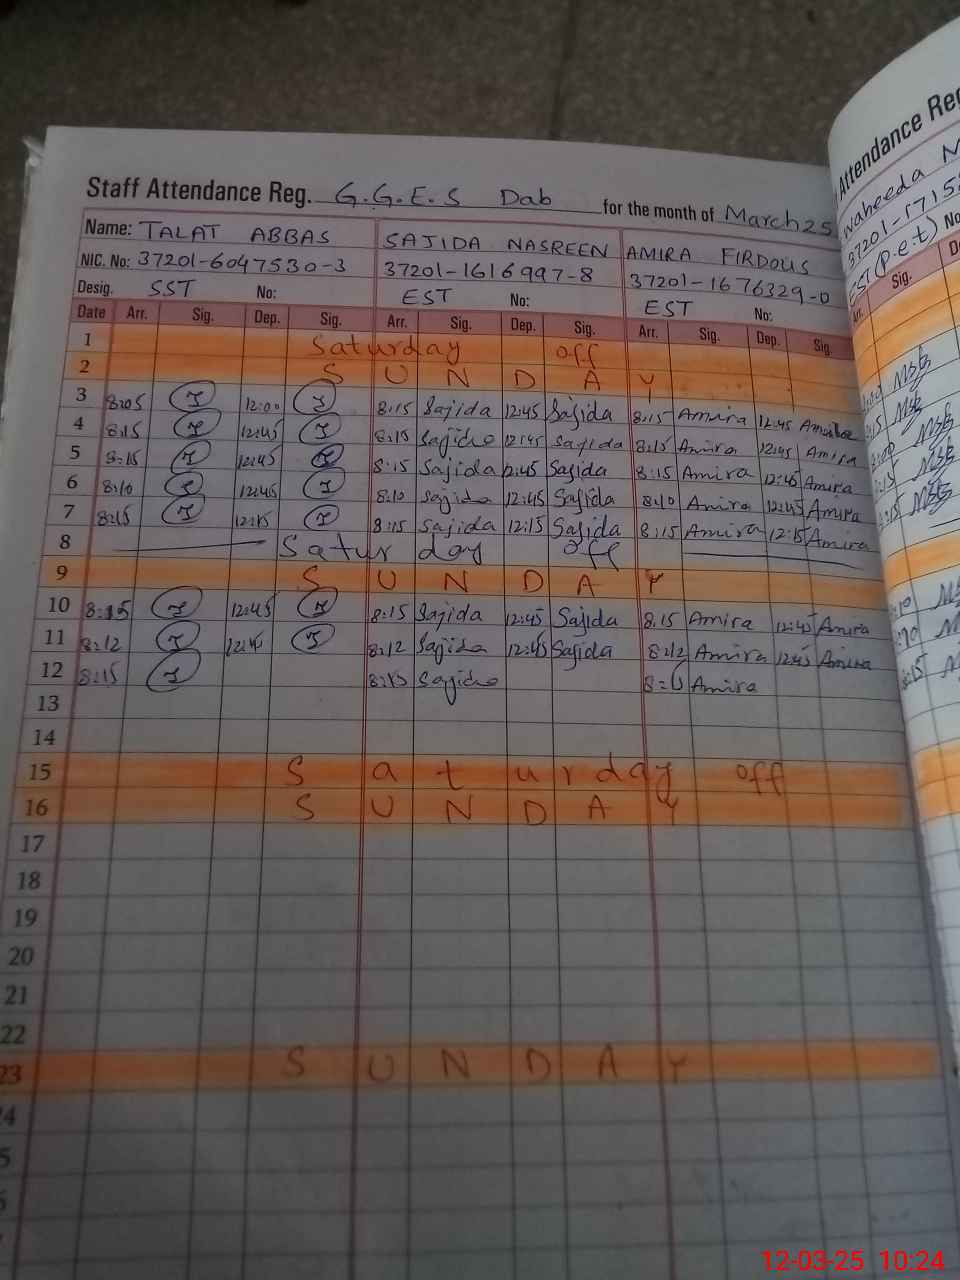 Staff Attendance Reg. G.G.E.S Dab for the month of March 25
Name: TALAT ABBAS SAJIDA NASREEN AMIRA FIRDOUS
NIC. No: 37201-6047530-3 37201-1616997-8 37201-1676329-0
Desig. SST No: EST No: EST No:
Date Arr. Sig. Dep. Sig. Arr. Sig. Dep. Sig. Arr. Sig. Dep. Sig.
1 Saturday off
2 S U N D A Y
3 8:05 12:00 8:15 Sajida 12:45 Sajida 8:15 Amira 12:45 Amira
4 8:15 12:45 8:15 Sajida 12:45 Sajida 8:15 Amira 12:45 Amira
5 8:15 12:45 8:15 Sajida 12:45 Sajida 8:15 Amira 12:45 Amira
6 8:10 12:45 8:10 Sajida 12:45 Sajida 8:10 Amira 12:45 Amira
7 8:15 12:15 8:15 Sajida 12:15 Sajida 8:15 Amira 12:15 Amira
8 Saturday off
9 S U N D A Y
10 8:15 12:45 8:15 Sajida 12:45 Sajida 8:15 Amira 12:45 Amira
11 8:12 12:45 8:12 Sajida 12:45 Sajida 8:12 Amira 12:45 Amira
12 8:15 8:15 Sajida Amira
13
14
15 S a t u r d a y off
16 S U N D A Y
17
18
19
20
21
22
23 S U N D A Y
Attendance Reg
Waheeda
37201-1715
EST (P.e.t) No
Sig.
12-03-25 10:24